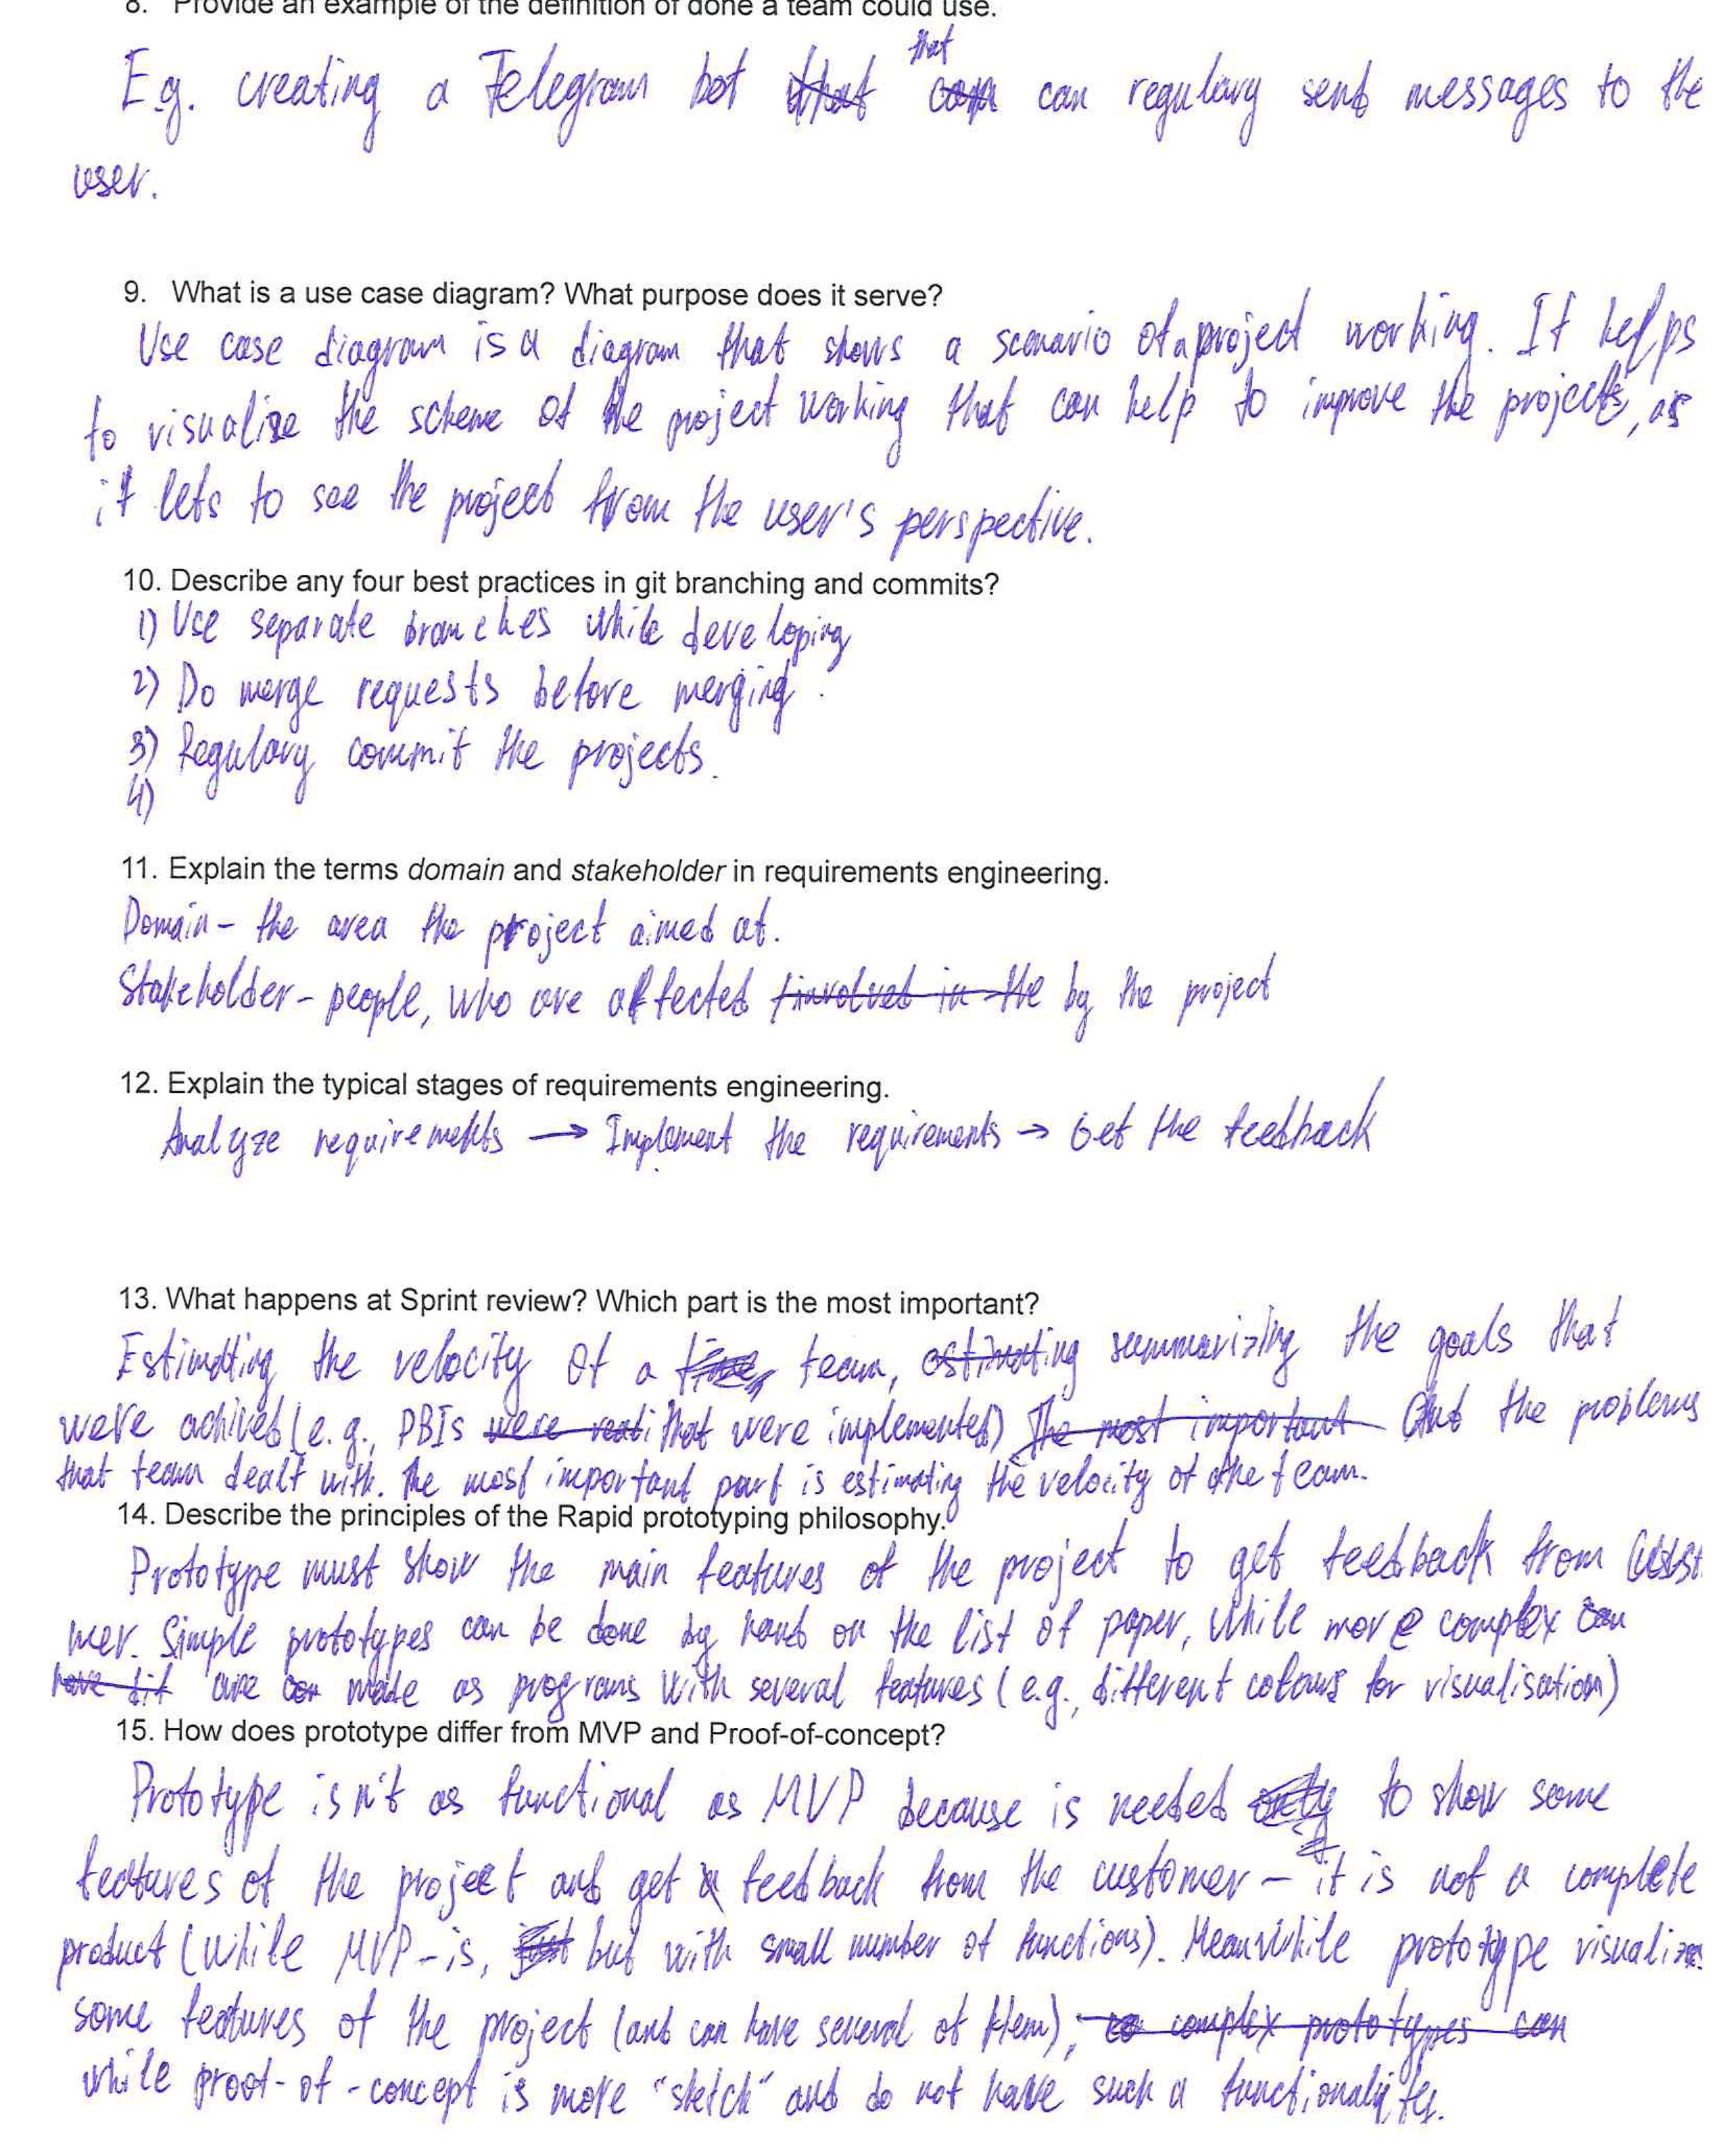 8. Provide an example of the definition of done a team could use.
that
E.g. creating a Telegram bot that can can regulary send messages to the
user.
9. What is a use case diagram? What purpose does it serve?
Use case diagram is a diagram that shows a scenario of a project working. It helps
to visualize the scheme of the project working that can help to improve the projects, as
it lets to see the project from the user's perspective.
10. Describe any four best practices in git branching and commits?
1) Use separate branches while developing
2) Do merge requests before merging.
3) Regulary commit the projects.
4)
11. Explain the terms domain and stakeholder in requirements engineering.
Domain - the area the project aimed at.
Stakeholder - people, who are affected involved in the by the project
12. Explain the typical stages of requirements engineering.
Analyze requirements → Implement the requirements → Get the feedback
13. What happens at Sprint review? Which part is the most important?
Estimating the velocity of a team, estimating summarizing the goals that
were achived (e.g., PBIs were that were implemented) The most important And the problems
that team dealt with. The most important part is estimating the velocity of the team.
14. Describe the principles of the Rapid prototyping philosophy.
Prototype must show the main features of the project to get feedback from custo
mer. Simple prototypes can be done by hand on the list of paper, while more complex can
have dif are made as programs with several features (e.g., different colours for visualisation)
15. How does prototype differ from MVP and Proof-of-concept?
Prototype isn't as functional as MVP because is needed only to show some
features of the project and get a feedback from the customer - it is not a complete
product (while MVP - is, just but with small number of functions). Meanwhile prototype visualizes
some features of the project (and can have several of them), so complex prototypes can
while proof-of-concept is more "sketch" and do not have such a functionality.